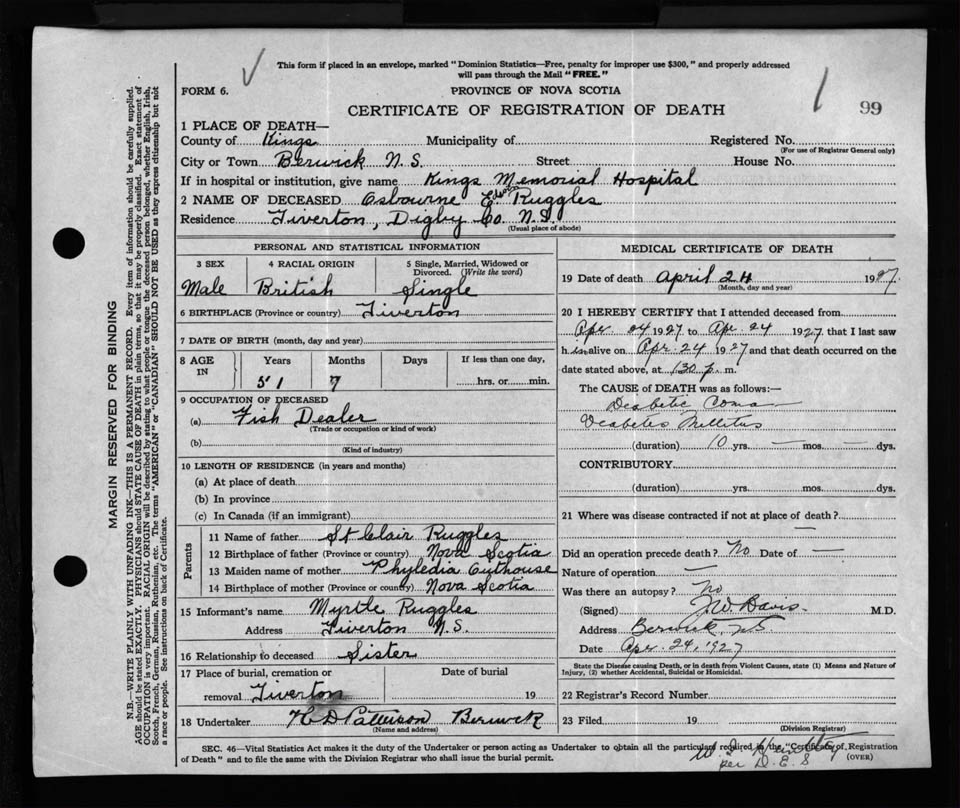 This form if placed in an envelope, marked "Dominion Statistics—Free, penalty for improper use $300," and properly addressed
will pass through the Mail "FREE."
FORM 6.
PROVINCE OF NOVA SCOTIA
CERTIFICATE OF REGISTRATION OF DEATH
99
1 PLACE OF DEATH—
County of Kings Municipality of Registered No.
(For use of Registrar General only)
City or Town Berwick N.S. Street House No.
If in hospital or institution, give name Kings Memorial Hospital
2 NAME OF DECEASED Osbourne E Ruggles
Residence Tiverton, Digby Co. N.S.
(Usual place of abode)
PERSONAL AND STATISTICAL INFORMATION
3 SEX 4 RACIAL ORIGIN 5 Single, Married, Widowed or
Divorced. (Write the word)
Male British Single
6 BIRTHPLACE (Province or country) Tiverton
7 DATE OF BIRTH (month, day and year)
8 AGE Years Months Days If less than one day,
IN 51 7 hrs. or min.
9 OCCUPATION OF DECEASED
(a) Fish Dealer
(Trade or occupation or kind of work)
(b)
(Kind of industry)
10 LENGTH OF RESIDENCE (in years and months)
(a) At place of death
(b) In province
(c) In Canada (if an immigrant)
Parents
11 Name of father St Clair Ruggles
12 Birthplace of father (Province or country) Nova Scotia
13 Maiden name of mother Phyledia Outhouse
14 Birthplace of mother (Province or country) Nova Scotia
15 Informant's name Myrtle Ruggles
Address Tiverton N.S.
16 Relationship to deceased Sister
17 Place of burial, cremation or Date of burial
removal Tiverton 19
18 Undertaker H D Patterson Berwick
(Name and address)
MEDICAL CERTIFICATE OF DEATH
19 Date of death April 24 1927.
(Month, day and year)
20 I HEREBY CERTIFY that I attended deceased from
Apr 24 1927 to Apr. 24 1927 that I last saw
h im alive on Apr. 24 1927 and that death occurred on the
date stated above, at 130 p. m.
The CAUSE of DEATH was as follows:—
Diabetic Coma
Diabetes Mellitus
(duration) 10 yrs. — mos. — dys.
CONTRIBUTORY
(duration) yrs. mos. dys.
21 Where was disease contracted if not at place of death?
—
Did an operation precede death? No Date of —
Nature of operation —
Was there an autopsy? No
(Signed) J.W. Davis M.D.
Address Berwick, N.S.
Date Apr. 24, 1927
State the Disease causing Death, or in death from Violent Causes, state (1) Means and Nature of
Injury, (2) whether Accidental, Suicidal or Homicidal.
22 Registrar's Record Number
23 Filed 19
(Division Registrar)
SEC. 46—Vital Statistics Act makes it the duty of the Undertaker or person acting as Undertaker to obtain all the particulars required in the "Certificate of Registration
of Death" and to file the same with the Division Registrar who shall issue the burial permit.
(OVER)
per D.E.S
MARGIN RESERVED FOR BINDING
N.B.—WRITE PLAINLY WITH UNFADING INK—THIS IS A PERMANENT RECORD. Every item of information should be carefully supplied.
AGE should be stated EXACTLY. PHYSICIANS should STATE CAUSE OF DEATH in plain terms, so that it may be properly classified. Exact statement of
OCCUPATION is very important. RACIAL ORIGIN will be described by stating to what people or tongue the deceased person belonged, whether English, Irish,
Scotch, French, German, Russian, Ruthenian, etc. The terms "AMERICAN" or "CANADIAN" SHOULD NOT BE USED as they express citizenship but not
a race or people. See instructions on back of Certificate.